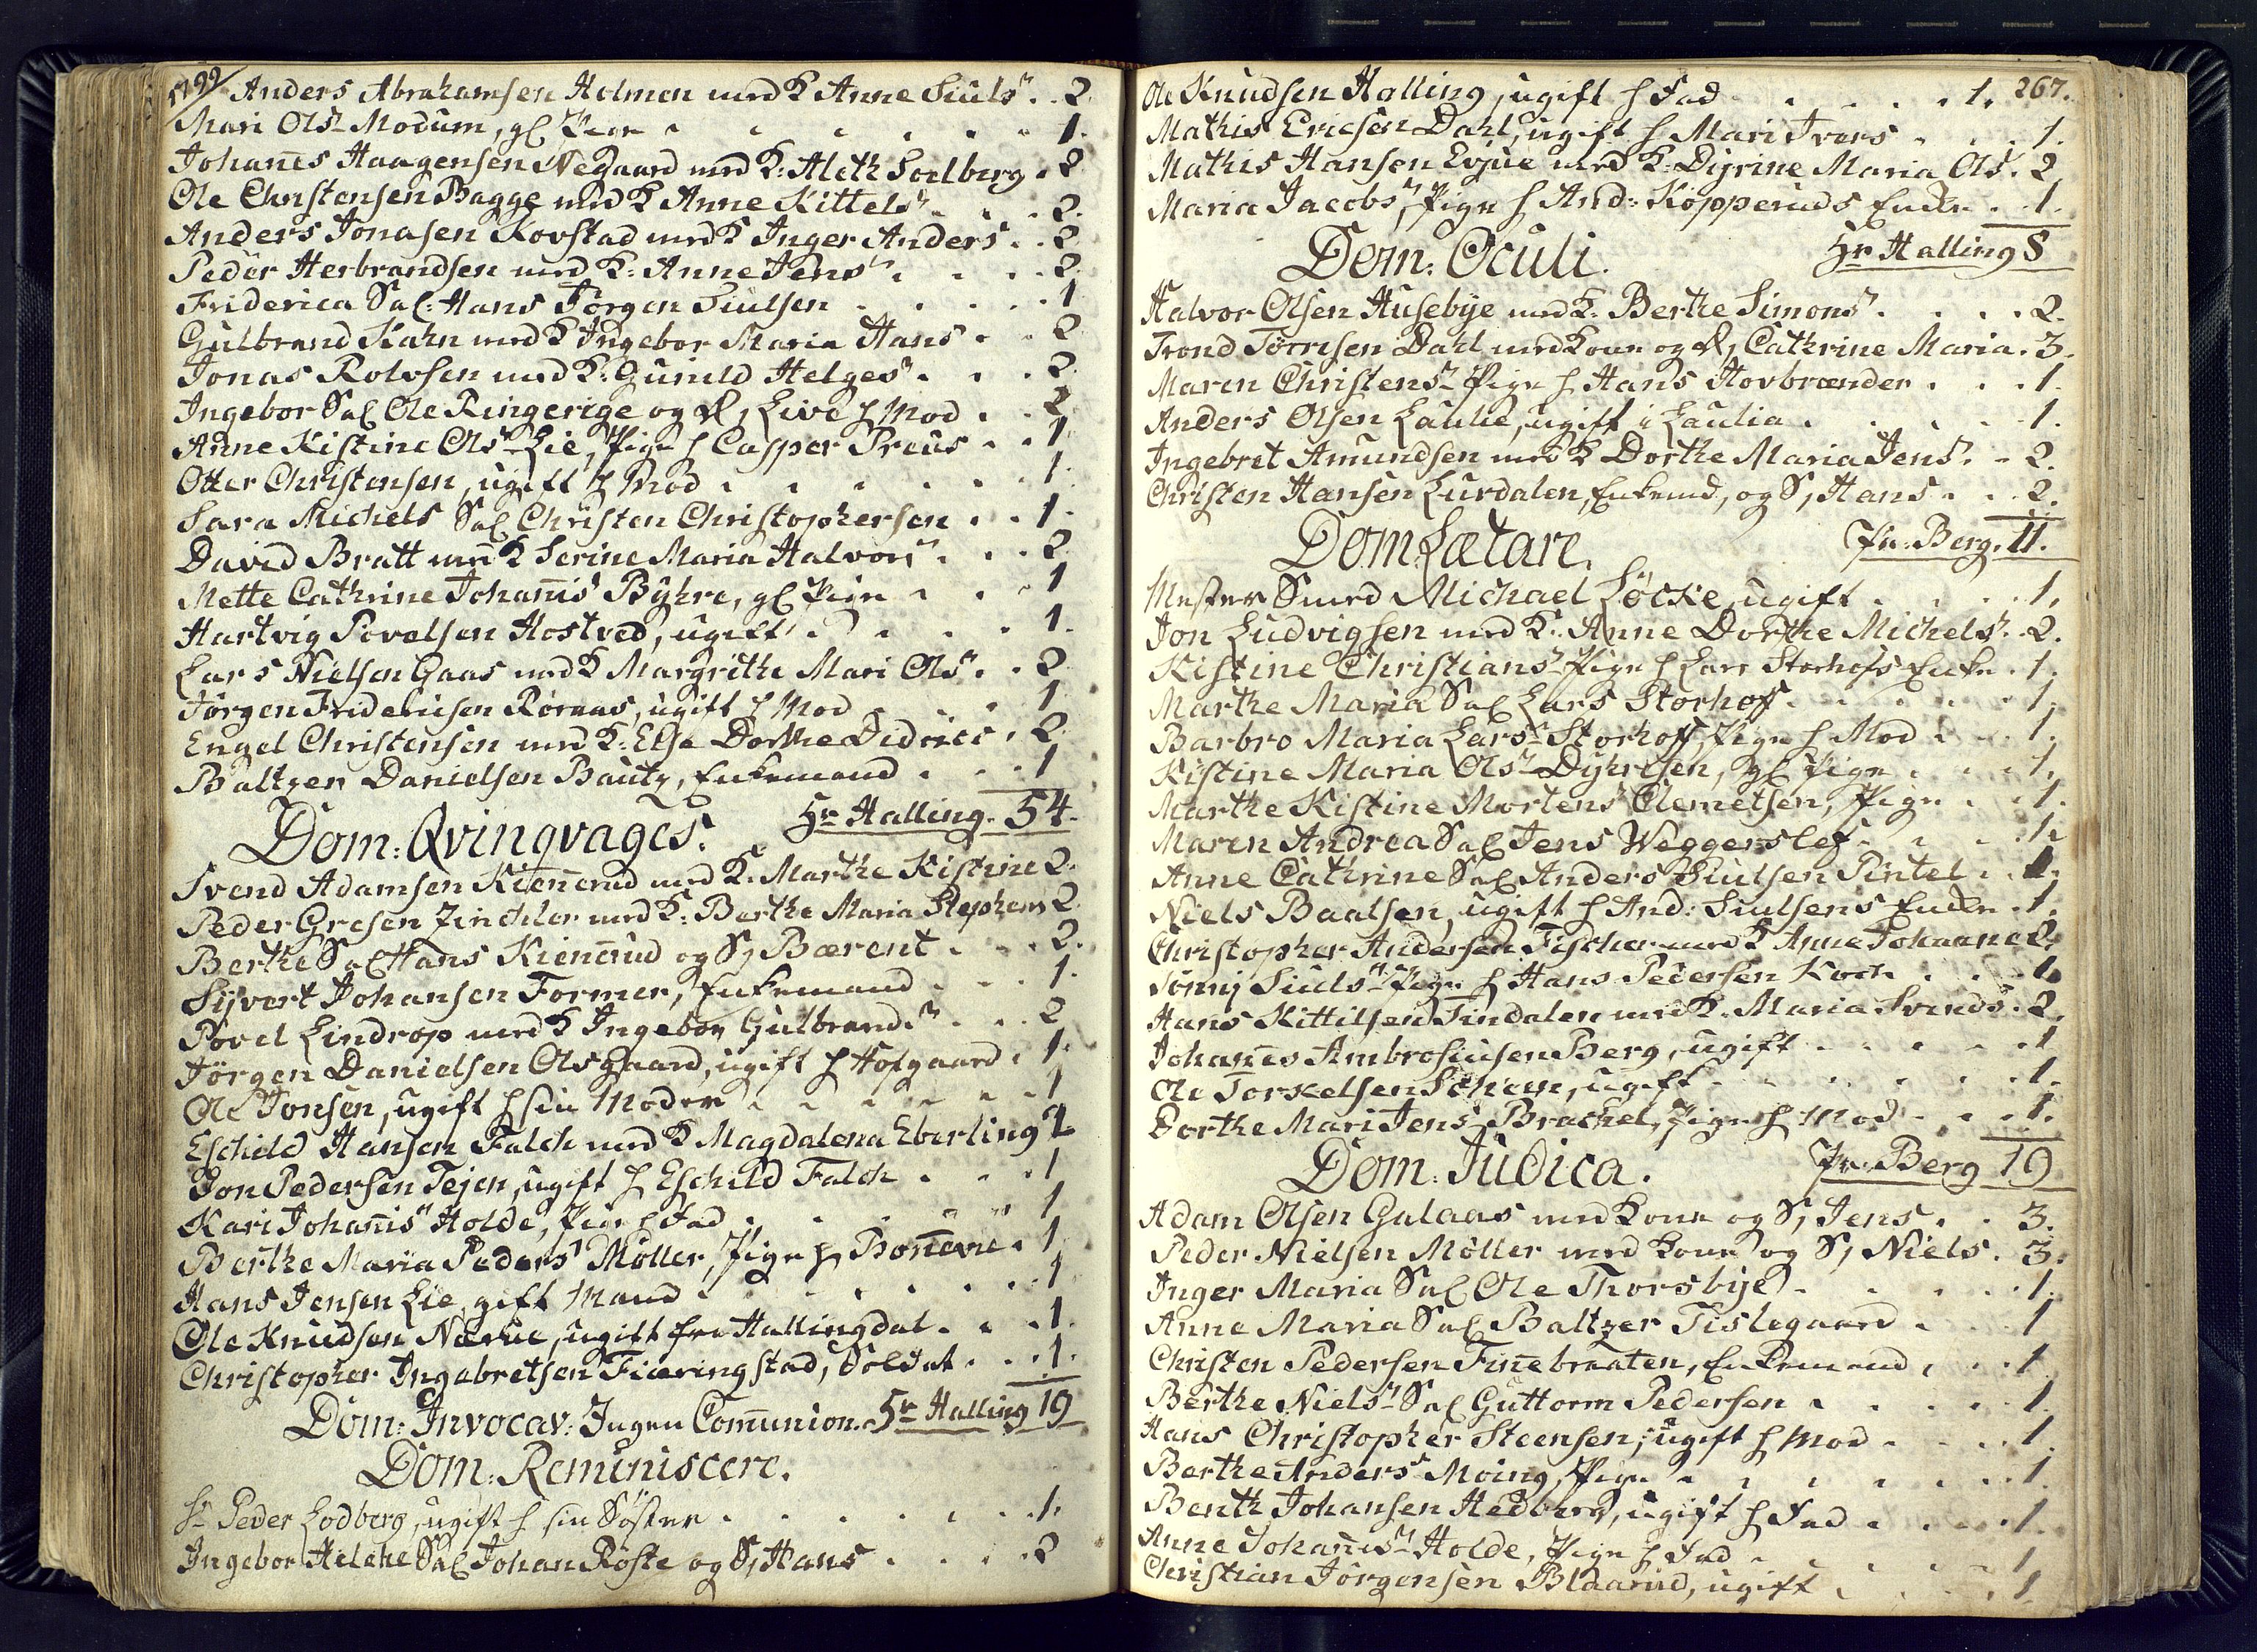 1799
Anders Abrahamsen Holmen med K Anne Siuls. . 2.
Mari Ols Modum, gl Pige . . . 1.
Johañes Haagensen Nedgaard med K: Aleth Soelberg . 2
Ole Christensen Bagge med K Anne Kittels . . 2.
Anders Jonasen Kovstad med K Inger Anders . . 2
Peder Herbrandsen med K: Anne Jens . . . 2.
Friderica Sal: Hans Jörgen Siulsen . . . 1
Gulbrand Kahn med K Ingebor Maria Hans . . 2
Jonas Rolvsen med K: Gunild Helges . . . 2.
Ingebor Sal Ole Ringerige og D, Live h Mod . . 2
Anne Kistine Ols Lie, Pige h Casper Preus . . 1
Otter Christensen, ugift h Mod . . . 1.
Sara Michels Sal Christen Christophersen . . 1.
David Bratt med K Serine Maria Halvors . . . 2.
Mette Cathrine Johañis Byhre, gl Pige . . 1
Hartvig Povelsen Hostved, ugift . . . 1.
Lars Nielsen Gaas med K Margrethe Mari Ols . . 2
Jörgen Friderichsen Röraas, ugift h Mod . . . 1
Engel Christensen med K: Else Dorthe Didrics . 2
Baltzer Danielsen Bautz, Enkemand . . . 1
Hr Halling. 54.
Dom: Qvinqvages.
Svend Adamsen Kieñerud med K. Marthe Kistine 2.
Peder Gresen Zinchler med K: Berthe Maria Stephens 2
Berthe Sal Hans Kieñerud og S, Bærent . . . 2.
Syvert Johansen Former, Enkemand . . . 1.
Povel Lindrop med K Ingebor Gulbrands . . . 2
Jörgen Danielsen Olsgaard, ugift h Hofgaard . 1.
Ole Jonsen, ugift h sin Moder . . . 1
Eschild Hansen Falch med K Magdalena Eberling 2
Jon Pedersen Tejen, ugift h Eschild Falch . . . 1
Kari Johañis Holde, Pige h Fad . . . 1
Berthe Maria Peders Möller, Pige h Boñevie . 1
Hans Jensen Lie, gift Mand . . . 1
Ole Knudsen Nærue, ugift fra Hallingdal . . . 1.
Christopher Ingebretsen Fiæringstad, Soldat . . . 1.
Dom: Invocav: Ingen Com̃union. Hr Halling 19
Dom: Reminiscere.
Sr Peder Lodberg, ugift h sin Söster . . . 1.
Ingebor Helche Sal Johan Röste og S, Hans . . . 2
267.
Ole Knudsen Halling, ugift h Fad . . . 1.
Mathis Ericsen Dahl, ugift h Mari Ivers . . . 1.
Mathis Hansen Evjue med K. Dyrine Maria Ols . 2
Maria Jacobs, Pige h And: Köpperuds Enke . 1.
Hr Halling 8
Dom: Oculi.
Halvor Olsen Husebye med K. Berthe Simons . . . 2.
Trond Törrisen Dahl med Kone og D, Cathrine Maria. 3.
Maren Christens Pige h Hans Hovbrænder . . . 1.
Anders Olsen Laulie, ugift i Laulia . . . 1.
Ingebret Amundsen med K Dorthe Maria Jens . . 2.
Christen Hansen Lurdalen, Enkemd, og S, Hans . . . 2.
Pr: Berg. 11.
Dom Lætare.
Mester Smed Michael Löcke, ugift . . . 1.
Jon Ludvigsen med K: Anne Dorthe Michels . 2.
Kistine Christians Pige h Lars Storhofs Enke . 1.
Marthe Maria Sal Lars Storhof . . . 1.
Barbro Maria Lars Storhoff, Pige h Mod . . . 1.
Kistine Maria Ols Dyhresen, gl Pige . . . 1.
Marthe Kistine Mortens Clemetsen, Pige . . . 1.
Maren Andrea Sal Jens Weggerslef . . . 1.
Anne Cathrine Sal Anders Siulsen Pintel . . 1.
Niels Baalsen, ugift h And: Siulsens Enke . 1.
Christopher Andersen Fischer med K Anne Johanne 2.
Sönnj Siuls Pige h Hans Pedersen Koch . . . 1.
Hans Kittilsen Tindalen med K. Maria Svends . 2.
Johañes Ambrosiusen Berg, ugift . . . 1
Ole Torkelsen Scheen, ugift . . . 1.
Dorthe Mari Jens Brachel, Pige h Mod . . . 1.
Pr: Berg 19
Dom: Judica.
Adam Olsen Gulaas med Kone og S, Jens . . 3.
Peder Nielsen Möller med Kone og S, Niels . 3.
Inger Maria Sal Ole Thorsbye . . . 1.
Anne Maria Sal Baltzer Tislegaard . . 1
Christen Pedersen Fiñebraaten, Enkemand . . . 1
Berthe Niels Sal Guttorm Pedersen . . . 1
Hans Christopher Steensen, ugift h Mod . . . 1.
Berthe Anders Moing, Pige . . . 1
Benth Johansen Hedberg, ugift h Fad . . . 1.
Anne Johañis Holde, Pige h Fad . . . 1
Christian Jörgensen Blaarud, ugift . . . 1